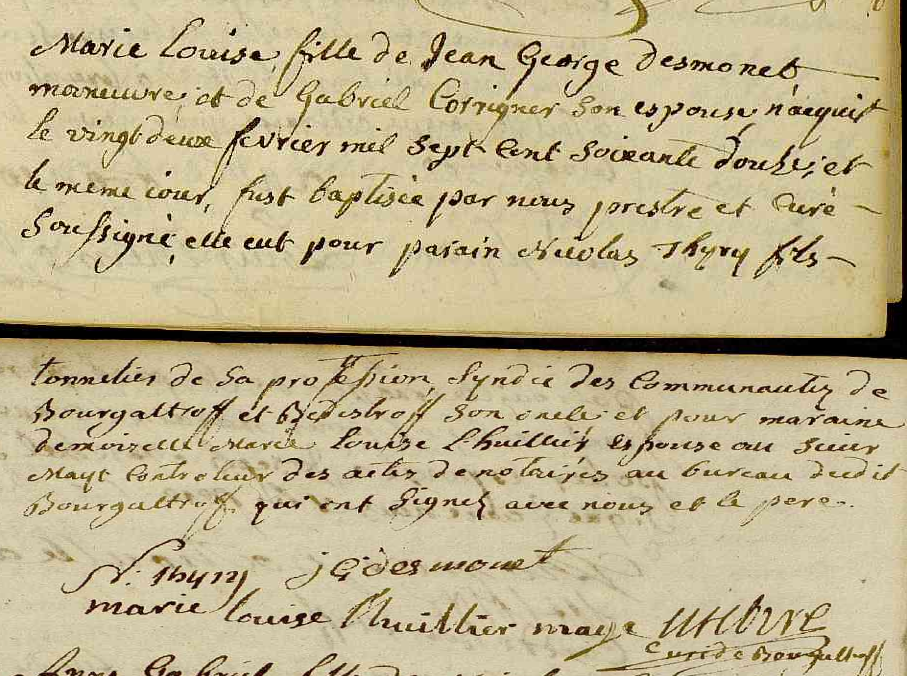 Marie Louise, fille de Jean George desmonet
maneuvre, et de Gabriel Corrigner son espouse, n'acquit
le vingt deux fevrier mil sept cent soixante douze, et
le meme iour, fust baptisée par nous prestre et curé
soussigné, elle eut pour parain Nicolas Thyry fils
tonnelier de sa profession, syndic des Communautez de
Bourgaltroff et Bedestroff son oncle, et pour maraine
demoiselle Marie Louise L'huillier espouse au sieur
Mayt Controleur des actes de notaires au bureau dudit
Bourgaltroff qui ont signez avec nous et le pere.
N. thyry j G desmonet
marie louise l'huillier maye
curé de Bourgaltroff